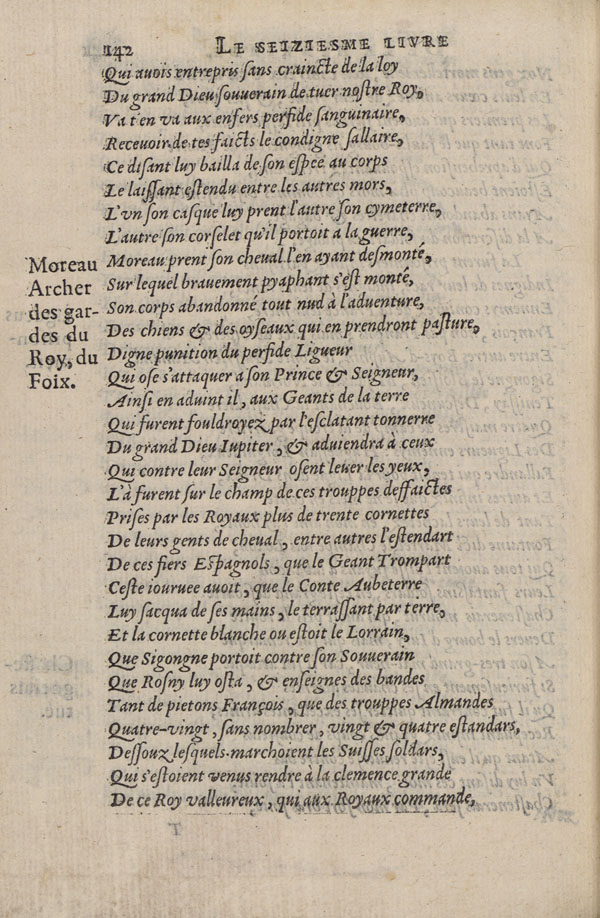 142 LE SEIZIESME LIVRE
Qui auois entrepris sans craincte de la loy
Du grand Dieu souuerain de tuer nostre Roy,
Va t'en va aux enfers perfide sanguinaire,
Receuoir de tes faicts le condigne sallaire,
Ce disant luy bailla de son espee au corps
Le laissant estendu entre les autres mors,
L'vn son casque luy prent l'autre son cymeterre,
L'autre son corselet qu'il portoit a la guerre,
Moreau prent son cheual l'en ayant desmonté,
Sur lequel brauement pyaphant s'est monté,
Son corps abandonné tout nud à l'aduenture,
Des chiens & des oyseaux qui en prendront pasture,
Digne punition du perfide Ligueur
Qui ose s'attaquer a son Prince & Seigneur,
Ainsi en aduint il, aux Geants de la terre
Qui furent fouldroyez par l'esclatant tonnerre
Du grand Dieu Iupiter, & aduiendra à ceux
Qui contre leur Seigneur osent leuer les yeux,
L'à furent sur le champ de ces trouppes deffaictes
Prises par les Royaux plus de trente cornettes
De leurs gents de cheual, entre autres l'estendart
De ces fiers Espagnols, que le Geant Trompart
Ceste iouruee auoit, que le Conte Aubeterre
Luy sacqua de ses mains, le terrassant par terre,
Et la cornette blanche ou estoit le Lorrain,
Que Sigongne portoit contre son Souuerain
Que Rosny luy osta, & enseignes des bandes
Tant de pietons François, que des trouppes Almandes
Quatre-vingt, sans nombrer, vingt & quatre estandars,
Dessouz lesquels marchoient les Suisses soldars,
Qui s'estoient venus rendre à la clemence grande
De ce Roy valleureux, qui aux Royaux commande,
Moreau
Archer
des gar-
des du
Roy, du
Foix.